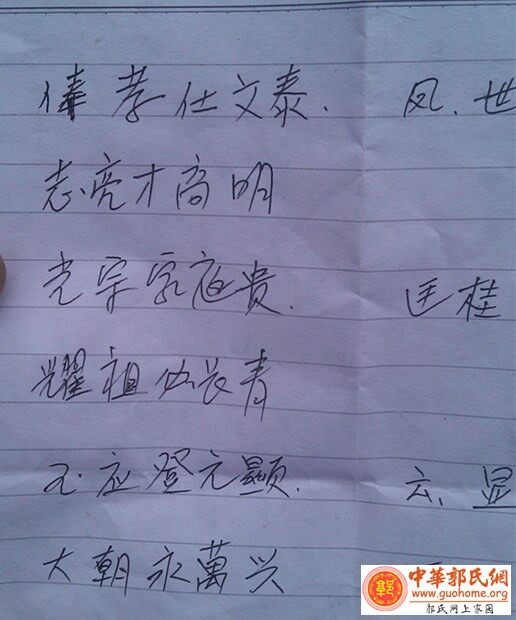 俸孝仕文泰. 凤.世
志亮才高明
光宗家庭贵. 匡桂
耀祖长青
应登元显. 云.显
大朝永萬兴
中華郭氏網
www.guohome.org
郭氏网上家園